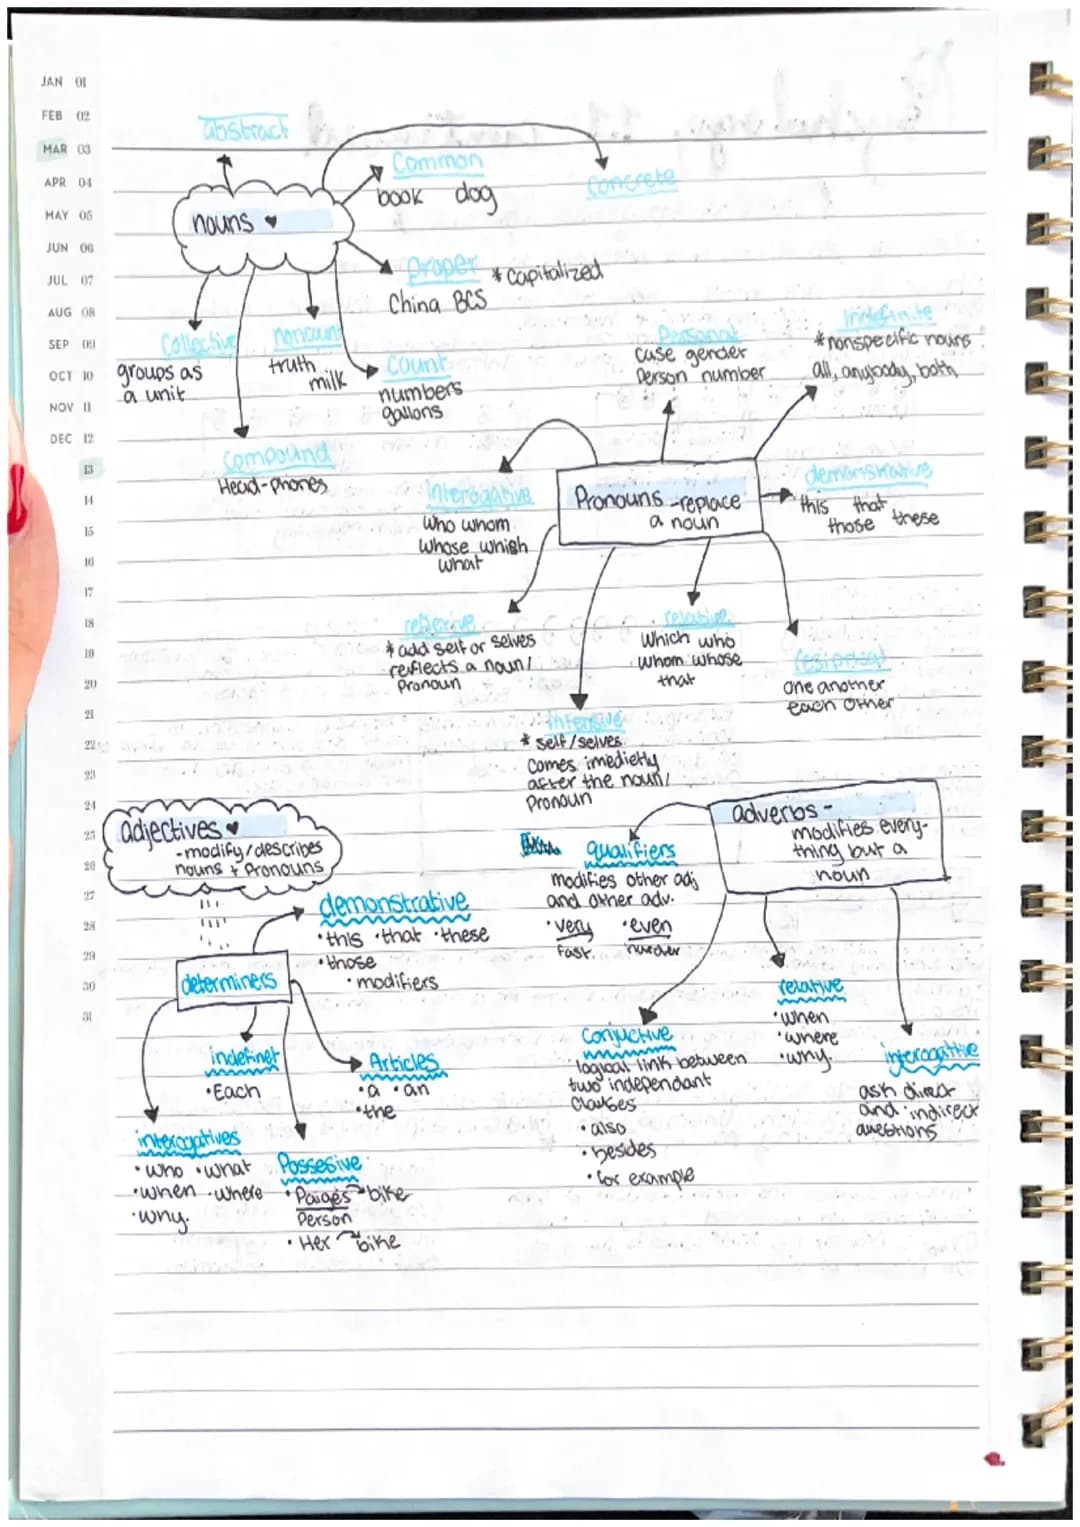 JAN 01
FEB 02
MAR 03
APR 04
MAY 05
JUN 06
JUL 07
AUG 08
SEP 09
OCT 10
NOV 11
DEC 12
13
14
15
16
17
18
19
20
21
22
23
24
25
26
27
28
29
30
31
nouns
abstract
Common
book dog
Concrete
proper *capitalized
China BCS
Collective
groups as
a unit
noncount
truth
milk
count
numbers
gallons
Compound
Head-phones
Pronouns -replace
a noun
Personal
case gender
Person number
Indefinite
*nonspecific nouns
all, anybody, both
demonstrative
this that
those these
Interogative
who whom
whose which
what
reflexive
*add self or selves
reflects a noun/
Pronoun
relative
Which who
whom whose
that
reciprocal
one another
each other
intensive
* self/selves
comes imedietly
after the noun/
Pronoun
adjectives
-modify/describes
nouns + Pronouns
determiners
demonstrative
•this •that •these
•those
•modifiers
indefinet
•Each
Articles
•a •an
•the
interogatives
•who •what
•when •where
•why.
Possesive
•Paiges bike
Person
•Her bike
adverbs -
modifies every-
thing but a
noun
qualifiers
modifies other adj
and other adv.
•very •even
fast harder
Conjuctive
logical link between
two independant
Clauses
•also
•besides
•for example
relative
•when
•where
•why.
interogative
ask direct
and indirect
questions